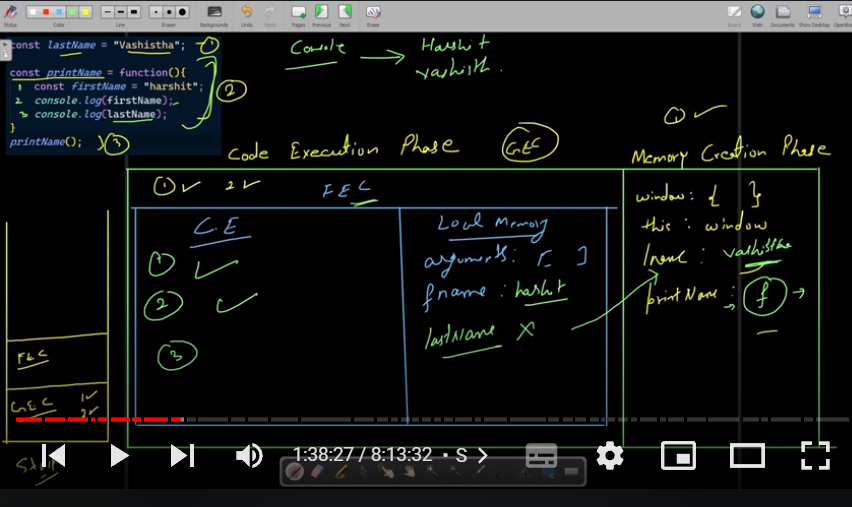 Status
Color
Line
Eraser
Backgrounds
Undo
Redo
Pages
Previous
Next
Erase
Board
Web
Documents
Show Desktop
const lastName = "Vashistha"; 1
const printName = function(){
1 const firstName = "harshit";
2 console.log(firstName);
3 console.log(lastName);
}
2
printName(); 3
Console → Harshit
Vashisth.
1 ✓
Code Execution Phase GEC Memory Creation Phase
1 ✓ 2 ✓ FEC
C.E Local Memory
1 ✓ arguments: [ ]
2 ✓ fname : harshit
3 lastName X
window: { }
this : window
lname : vashistha
printName : → f →
FEC
GEC 1 ✓
2 ✓
1:38:27 / 8:13:32 • S >